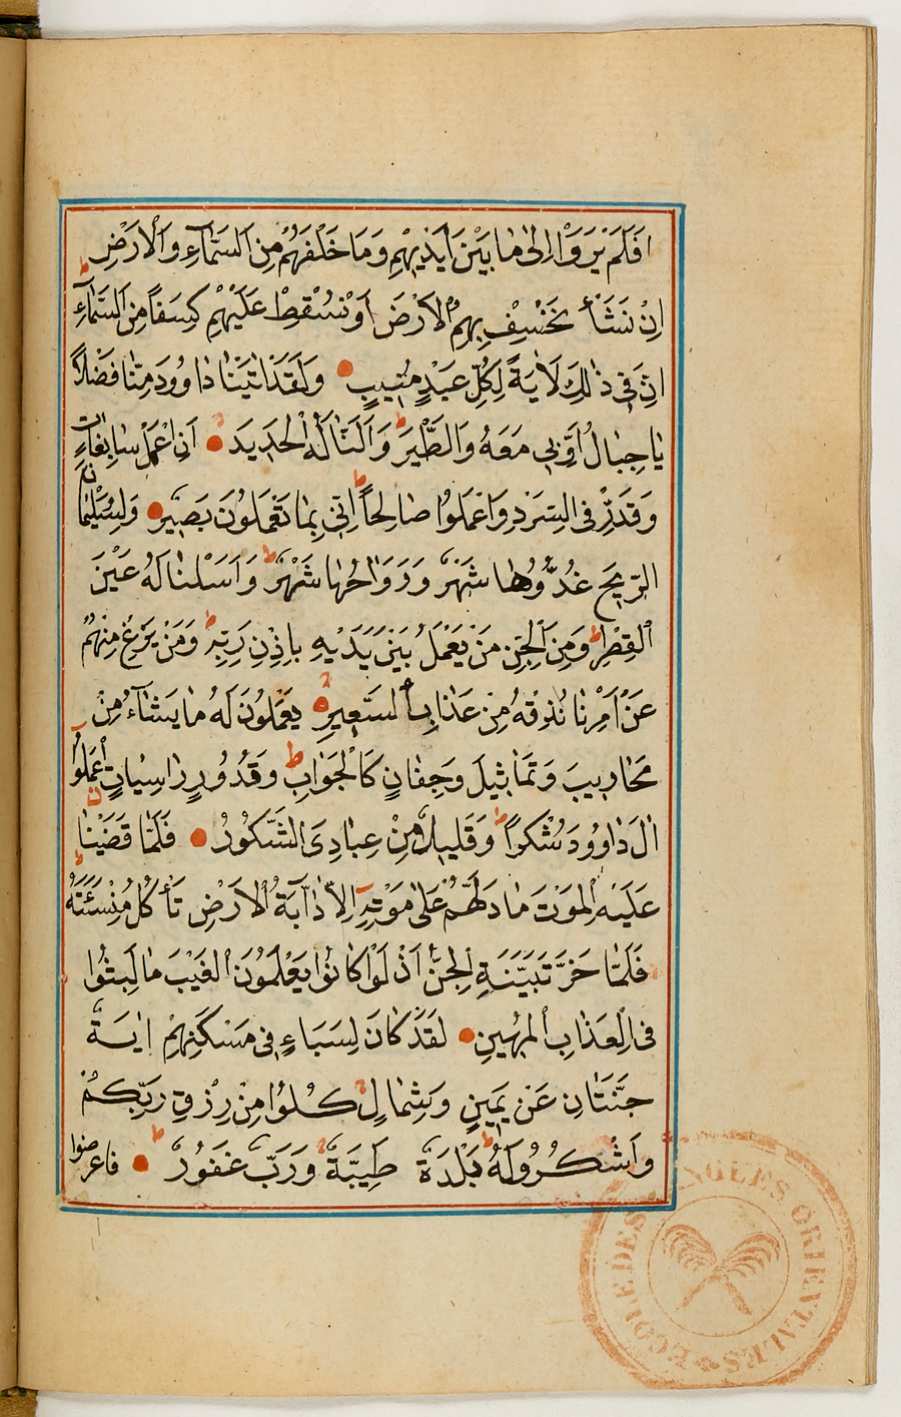 اَفَلَمْ يَرَوْا اِلٰى مٰا بَيْنَ اَيْدٖيهِمْ وَمَا خَلْفَهُمْ مِنَ السَّمَآءِ وَالْاَرْضِ ط
اِنْ نَشَأْ نَخْسِفْ بِهِمُ الْاَرْضَ اَوْ نُسْقِطْ عَلَيْهِمْ كِسَفاً مِنَ السَّمٰآءِ
اِنَّ فٖى ذٰلِكَ لَاٰيَةً لِكُلِّ عَبْدٍ مُنٖيبٍ وَلَقَدْ اٰتَيْنٰا دٰاوُودَ مِنّٰا فَضْلاً
يٰا جِبٰالُ اَوِّبٖى مَعَهُ وَالطَّيْرَ ط وَاَلَنّٰا لَهُ الْحَدٖيدَ اَنِ اعْمَلْ سٰابِغٰاتٍ
وَقَدِّرْ فِى السَّرْدِ وَاعْمَلُوا صٰالِحاً ط اِنّٖى بِمٰا تَعْمَلُونَ بَصٖيرٌ وَلِسُلَيْمٰانَ
الرّٖيحَ غُدُوُّهٰا شَهْرٌ وَرَوٰاحُهٰا شَهْرٌ ط وَاَسَلْنٰا لَهُ عَيْنَ
الْقِطْرِ ط وَمِنَ الْجِنِّ مَنْ يَعْمَلُ بَيْنَ يَدَيْهِ بِاِذْنِ رَبِّهٖ ط وَمَنْ يَزِغْ مِنْهُمْ
عَنْ اَمْرِنٰا نُذِقْهُ مِنْ عَذٰابِ السَّعٖيرِ يَعْمَلُونَ لَهُ مٰا يَشٰآءُ مِنْ
مَحٰارٖيبَ وَتَمٰاثٖيلَ وَجِفٰانٍ كَالْجَوٰابِ ط وَقُدُورٍ رٰاسِيٰاتٍ اعْمَلُوا
اٰلَ دٰاوُودَ شُكْراً ط وَقَلٖيلٌ مِنْ عِبٰادِىَ الشَّكُورُ فَلَمّٰا قَضَيْنٰا
عَلَيْهِ الْمَوْتَ مٰا دَلَّهُمْ عَلٰى مَوْتِهٖ اِلّاٰ دٰآبَّةُ الْاَرْضِ تَأْكُلُ مِنْسَئَتَهُ ط
فَلَمّٰا خَرَّ تَبَيَّنَتِ الْجِنُّ اَنْ لَوْ كٰانُوا يَعْلَمُونَ الْغَيْبَ مٰا لَبِثُوا
فِى الْعَذٰابِ الْمُهٖينِ لَقَدْ كٰانَ لِسَبَاءٍ فٖى مَسْكَنِهِمْ اٰيَةٌ
جَنَّتٰانِ عَنْ يَمٖينٍ وَشِمٰالٍ كُلُوا مِنْ رِزْقِ رَبِّكُمْ
وَاشْكُرُوا لَهُ ط بَلْدَةٌ طَيِّبَةٌ وَرَبٌّ غَفُورٌ فاعرضوا
ECOLE DES LANGUES ORIENTALES